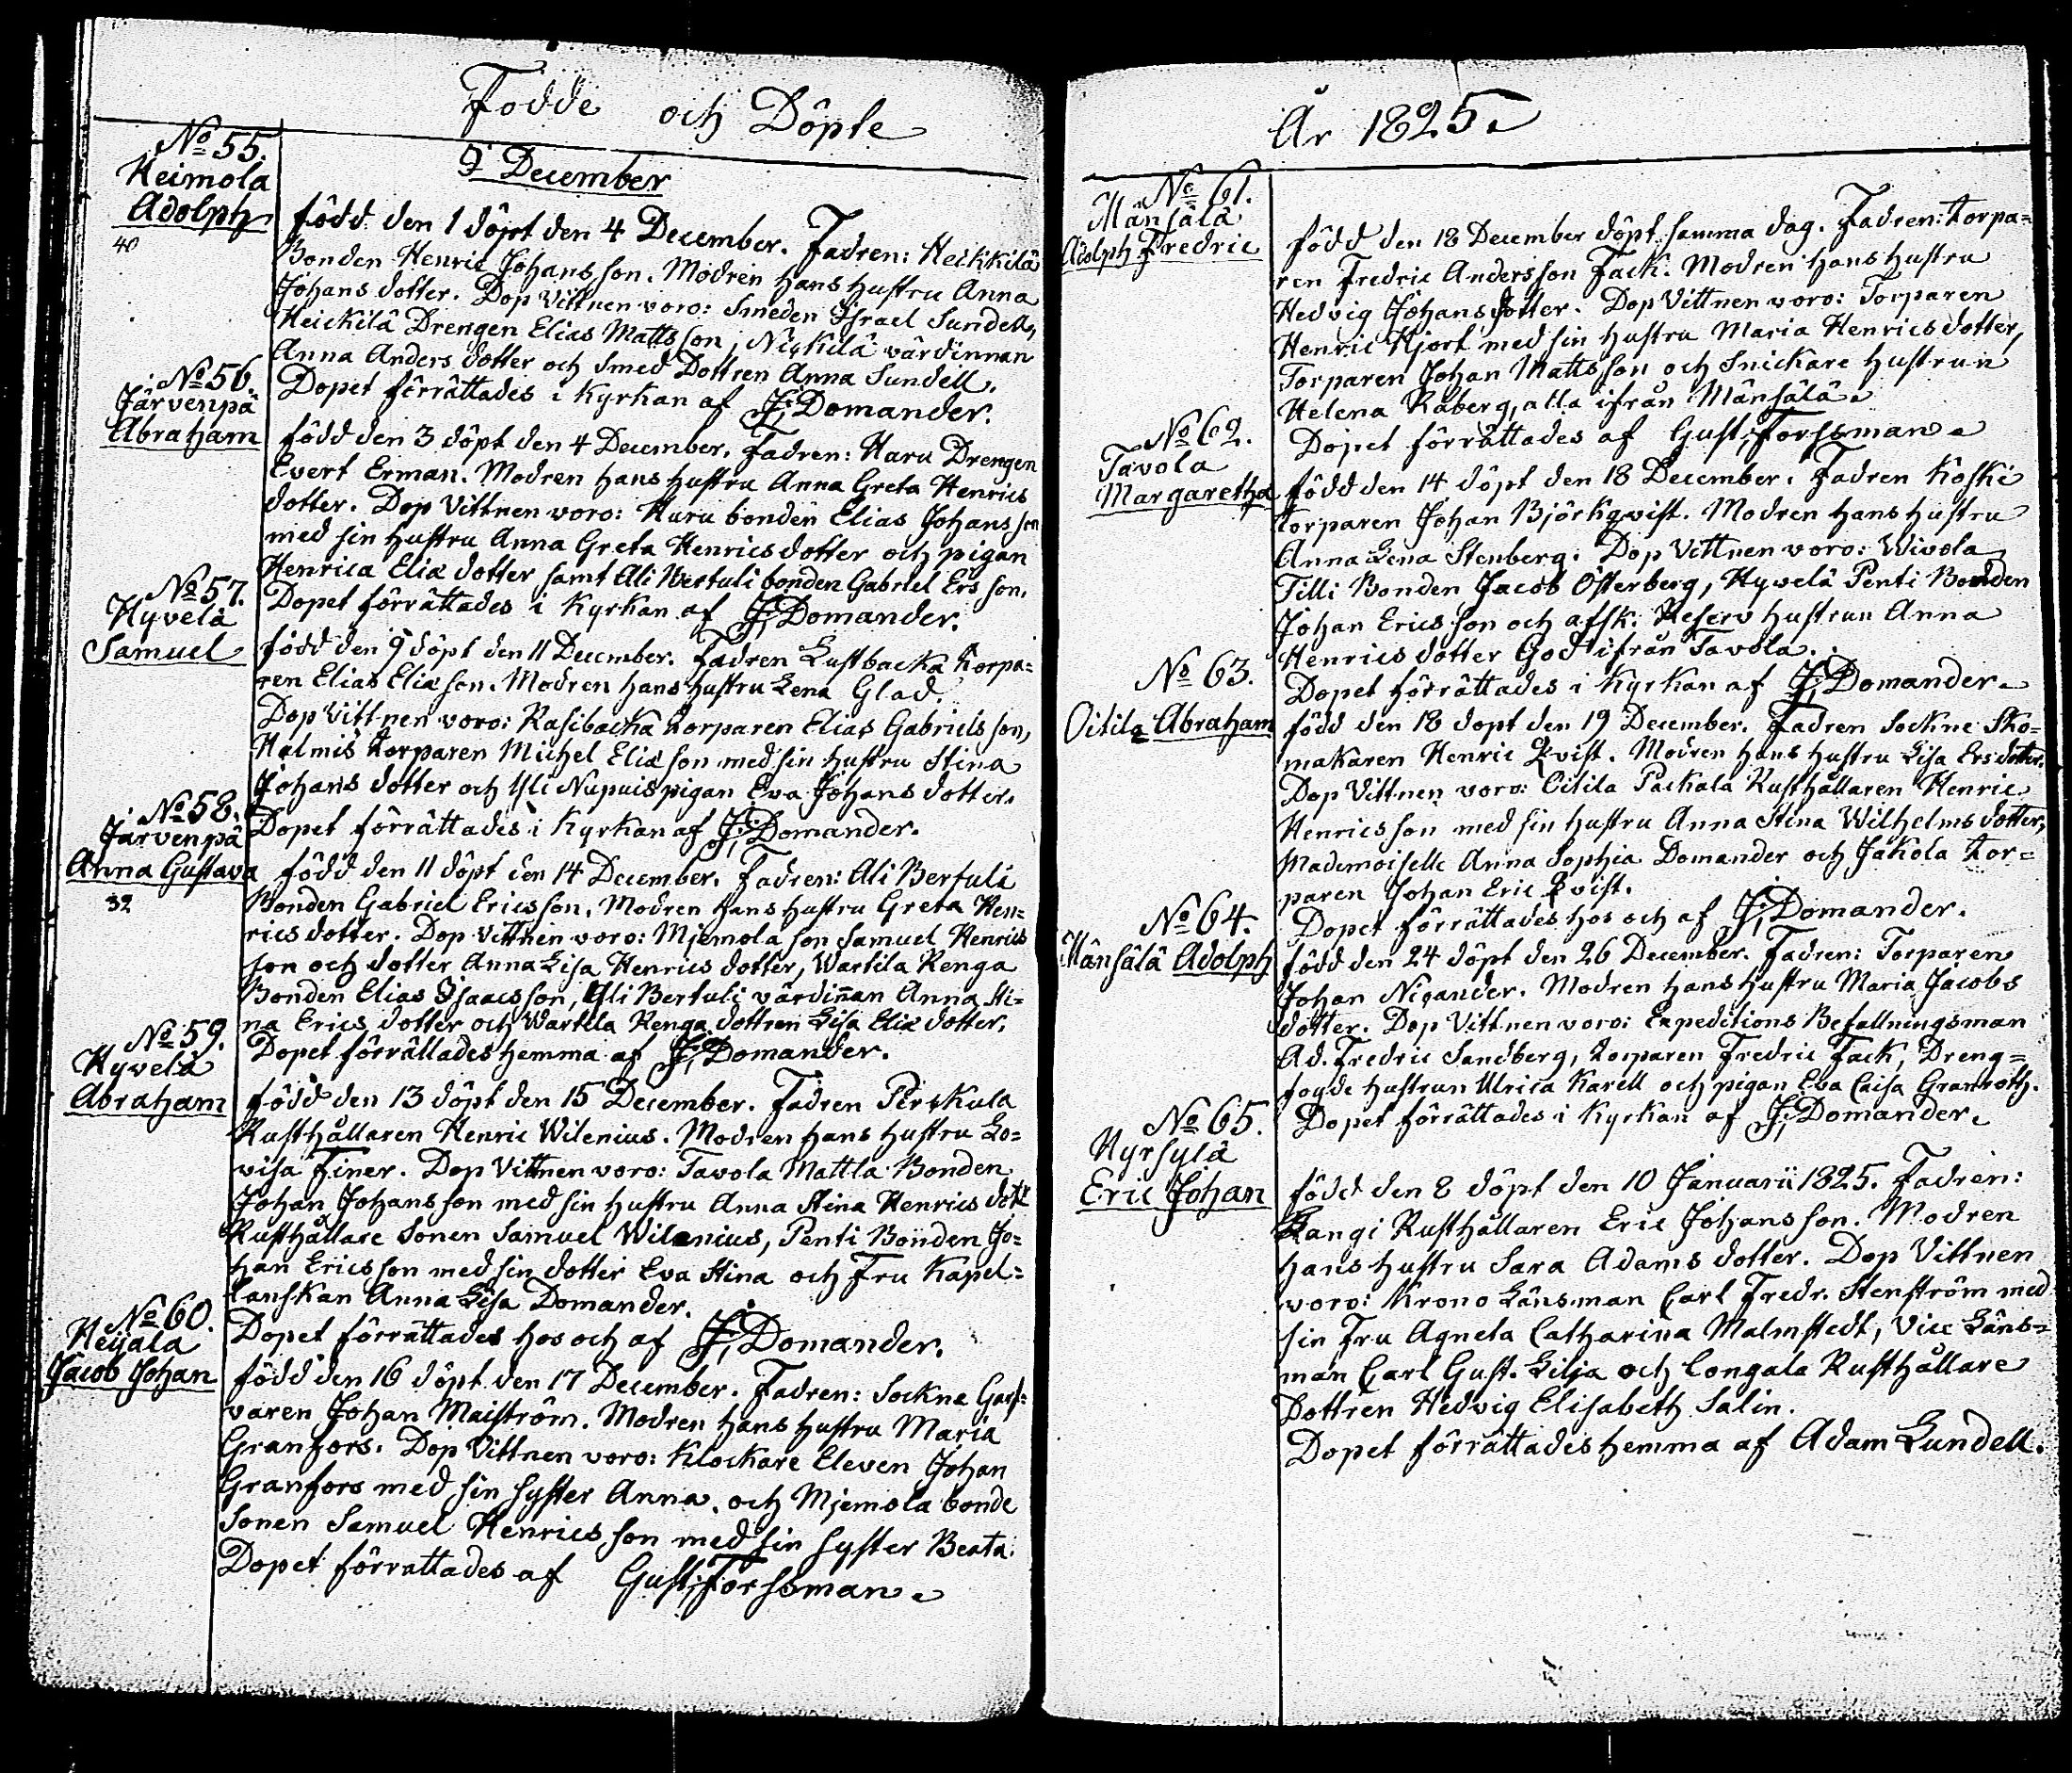 Födde och Döpte
i December
No 55.
Heimola
Adolph
40
född den 1 döpt den 4 December. Fadren: Heikkilä
Bonden Henric Johansson. Modren hans hustru Anna
Johans dotter. Dop Vittnen voro: Smeden Israel Sundell,
Heickilä Drengen Elias Mattsson, Nickilä värdinnan
Anna Anders dotter och Smed Dottren Anna Sundell.
Dopet förrättades i Kyrkan af J. Domander.
No 56.
Järvenpä
Abraham
född den 3 döpt den 4 December. Fadren: Haru Drengen
Evert Erman. Modren hans hustru Anna Greta Henrics
dotter. Dop Vittnen voro: Haru bonden Elias Johansson
med sin hustru Anna Greta Henricsdotter och pigan
Henrica Eliæ dotter samt Ali Bertuli bonden Gabriel Ersson.
Dopet förrättades i Kyrkan af J. Domander.
No 57.
Hyvelä
Samuel
född den 9 döpt den 11 December. Fadren Lustbacka torpa=
ren Elias Eliæ son. Modren hans hustru Lena Glad.
Dop Vittnen voro: Rasibacka torparen Elias Gabriels son,
Halmis torparen Michel Eliæ son med sin hustru Stina
Johans dotter och Yli Nupuis pigan Eva Johans dotter.
Dopet förrättades i Kyrkan af J. Domander.
No 58.
Järvenpä
Anna Gustava
32
född den 11 döpt den 14 December. Fadren: Ali Bertuli
Bonden Gabriel Ericsson. Modren hans hustru Greta Hen=
rics dotter. Dop Vittnen voro: Mjemola son Samuel Henrics
son och dotter Anna Lisa Henrics dotter, Wartila Renga
Bonden Elias Isaacsson, Yli Bertuli värdiñan Anna Sti=
na Erics dotter och Wartila Renga dottren Lisa Eliæ dotter.
Dopet förrättades hemma af J. Domander.
No 59.
Hyvelä
Abraham
född den 13 döpt den 15 December. Fadren Pirskula
Rusthållaren Henric Wilenius. Modren hans hustru Lo=
visa Finer. Dop Vittnen voro: Tavola Mattla Bonden
Johan Johansson med sin hustru Anna Stina Henrics dottr
Rusthållare Sonen Samuel Wilenius, Penti Bonden Jo=
han Ericsson med sin dotter Eva Stina och Fru Kapel=
lanskan Anna Lisa Domander.
Dopet förrättades hos och af J. Domander.
No 60.
Heijala
Jacob Johan
född den 16 döpt den 17 December. Fadren: Sockne Garf=
varen Johan Maiström. Modren hans hustru Maria
Granfors. Dop Vittnen voro: Klockare Eleven Johan
Granfors med sin syster Anna, och Mjemola bonde
Sonen Samuel Henricsson med sin syster Beata.
Dopet förrattades af Gust. Forssman.
År 1825.
No 61.
Mänsälä
Adolph Fredric
född den 18 December döpt samma dag. Fadren: torpa=
ren Fredric Andersson Fack. Modren hans hustru
Hedvig Johansdotter. Dop Vittnen voro: Torparen
Henric Hjort med sin hustru Maria Henricsdotter,
Torparen Johan Mattsson och Snickare hustrun
Helena Råberg, alla ifrån Mänsälä.
Dopet förrättades af Gust. Forssman.
No 62.
Tavola
Margaretha
född den 14 döpt den 18 December. Fadren Koski
torparen Johan Björkqvist. Modren hans hustru
Anna Lena Stenberg. Dop Vittnen voro: Wivola
Tilli Bonden Jacob Österberg, Hyvelä Penti Bonden
Johan Ericsson och afsk. Reserv hustrun Anna
Henrics dotter God ifrån Tavola.
Dopet förrättades i Kyrkan af J. Domander.
No 63.
Oitila Abraham
född den 18 döpt den 19 December. Fadren Sockne Sko=
makaren Henric Qvist. Modren hans hustru Lisa Ersdotter.
Dop Vittnen voro: Oitila Packala Rusthållaren Henric
Henricsson med sin hustru Anna Stina Wilhelms dotter,
Mademoiselle Anna Sophia Domander och Jäkola tor=
paren Johan Eric Qvist.
Dopet förrättades hos och af J. Domander.
No 64.
Mänsälä Adolph
född den 24 döpt den 26 December. Fadren: Torparen
Johan Nigander. Modren hans hustru Maria Jacobs
dotter. Dop Vittnen voro: Expeditions Befallningsman
Ad. Fredric Sandberg, torparen Fredric Fack, Dreng=
fogde hustrun Ulrica Karell och pigan Eva Caisa Granroth.
Dopet förrättades i Kyrkan af J. Domander.
No 65.
Hyrsylä
Eric Johan
född den 8 döpt den 10 Januarii 1825. Fadren:
Langi Rusthållaren Eric Johansson. Modren
hans hustru Sara Adams dotter. Dop Vittnen
voro: Krono Länsman Carl Fredr. Stenström med
sin Fru Agneta Catharina Malmstedt, Vice Läns=
man Carl Gust. Lilja och Congala Rusthållare
Dottren Hedvig Elisabeth Salin.
Dopet förrättades hemma af Adam Lundell.